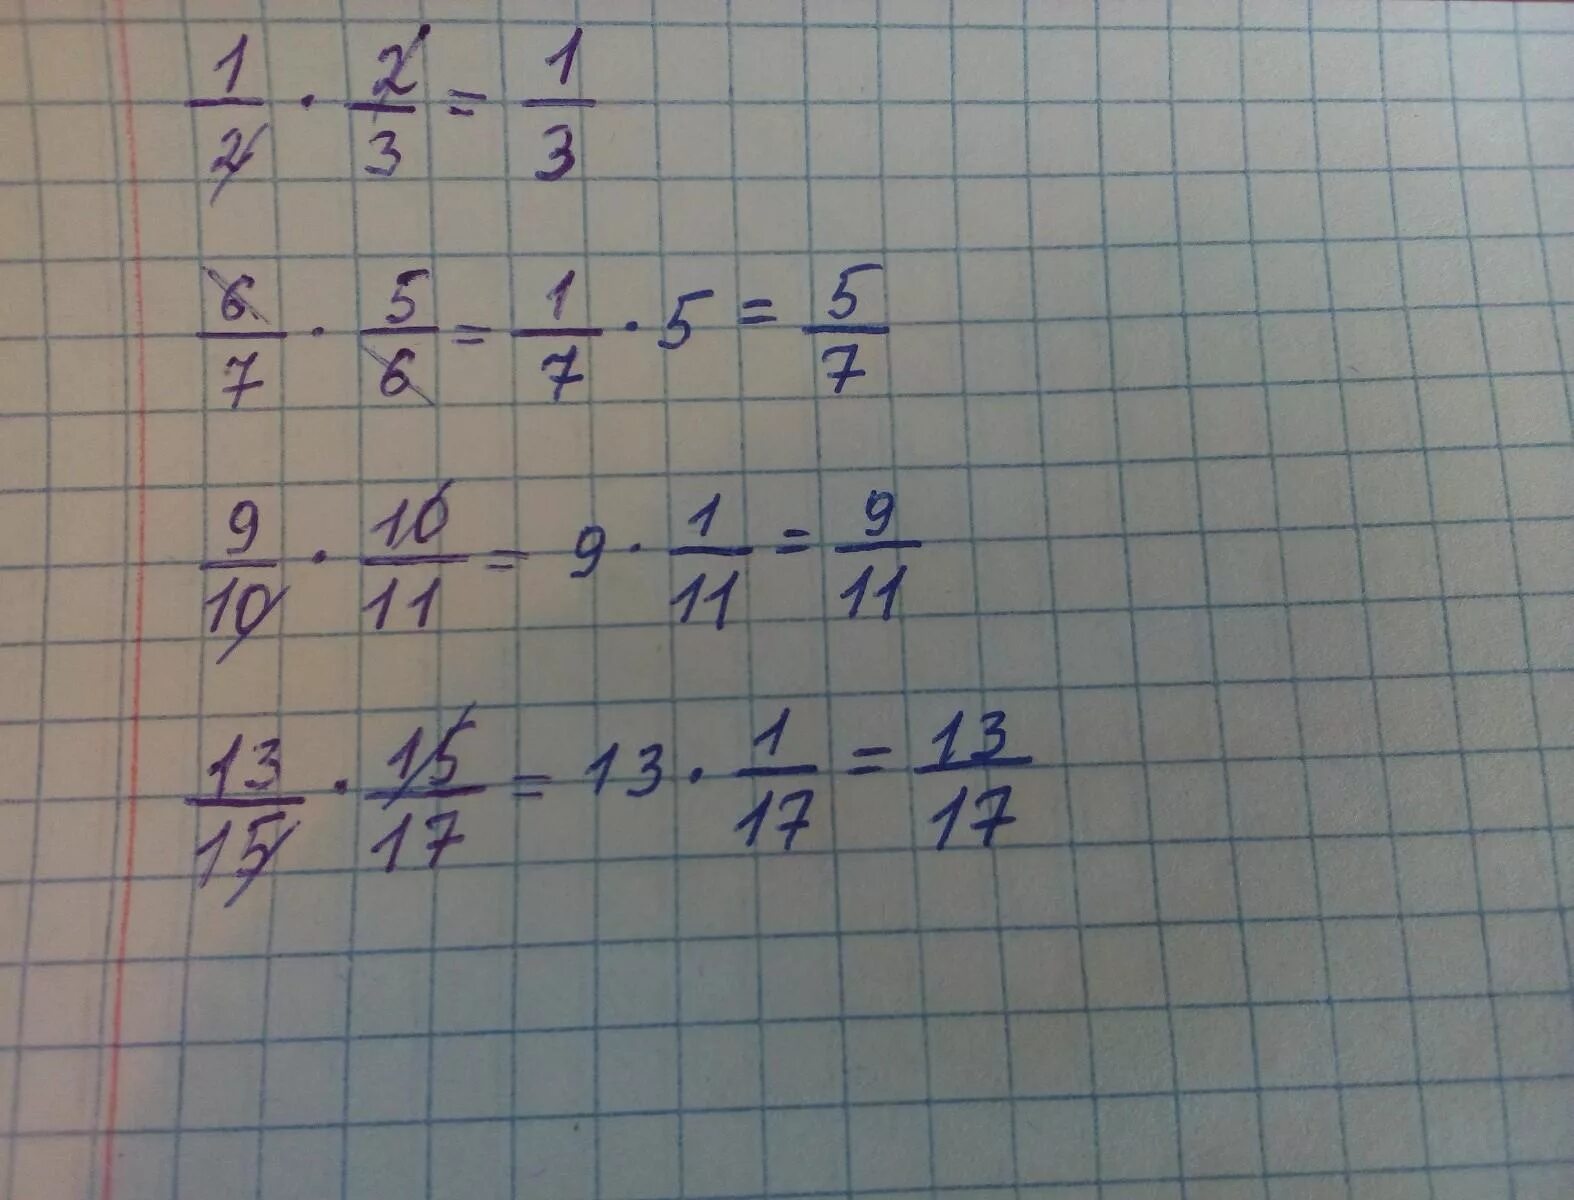 1/2 · 2/3 = 1/3
6/7 · 5/6 = 1/7 · 5 = 5/7
9/10 · 10/11 = 9 · 1/11 = 9/11
13/15 · 15/17 = 13 · 1/17 = 13/17